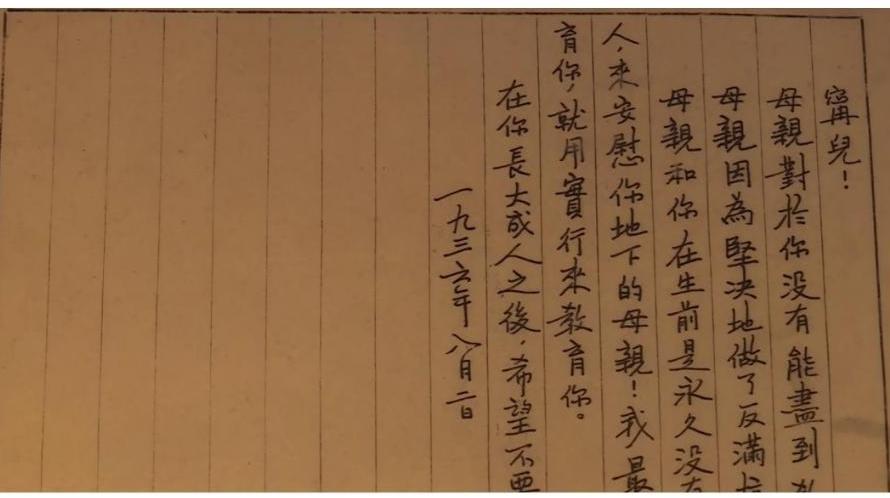 甯兒！
母親對於你没有能盡到
母親因為堅决地做了反滿
母親和你在生前是永久没有
人，來安慰你地下的母親！我最
育你，就用實行來教育你。
在你長大成人之後，希望不要
一九三六年八月二日